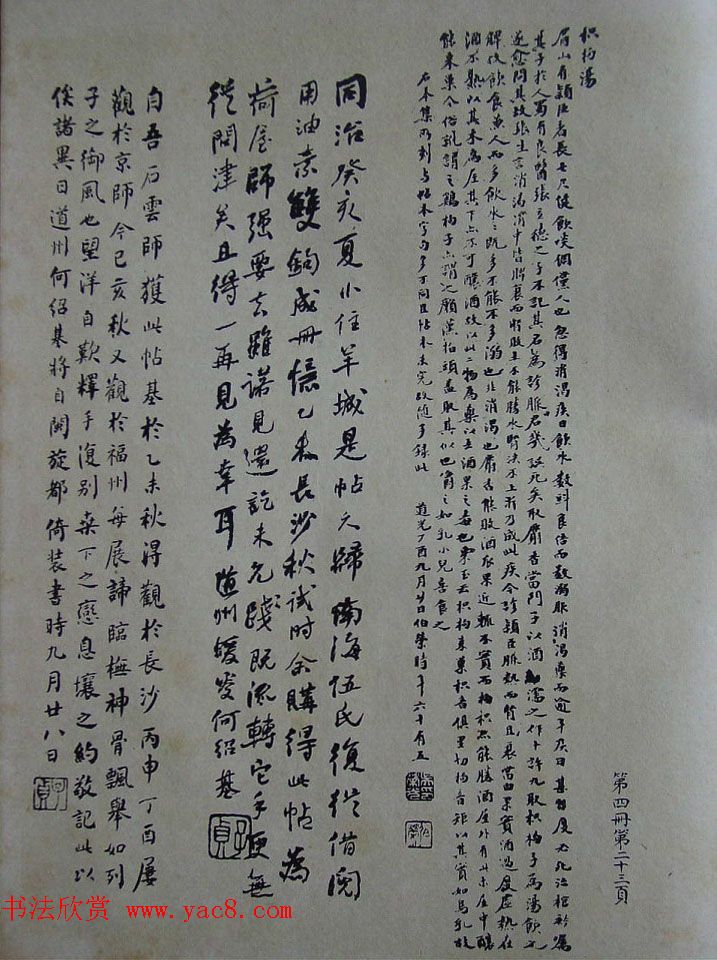 枳枸湯
眉山有穎臣者長七尺健飲啖倜儻人也忽得消渴疾日飲水數斗食倍而數溺服消渴藥而逾年疾日甚自度必死治棺衾囑
其子於人蜀有良醫張立德之子不記其名為診脈笑曰君幾誤死矣取麝香當門子以酒濡之作十許丸取枳枸子為湯飲之
遂愈問其故張生言消渴消中皆脾衰而腎敗土不能勝水腎液不上泝乃成此疾今診穎臣脾熱而腎且衰當由果實酒過度虛熱在
脾故飲食兼人而多飲水水既多不能不多溺也非消渴也麝香能敗酒瓜果近輒不實而枸枳亦能勝酒屋外有此木屋中釀
酒不熟以其木為屋其下亦不可釀酒故以此二物為藥以去酒果之毒也宋玉云枳枸來巢枳音俱里切枸音矩以其實如鳥乳故
能來巢今俗訛謂之雞枸子亦謂之癩漢指頭蓋取其似也嚼之如乳小兒喜食之
石本集所刻與帖本字句多不同且帖本未完故隨手錄此 道光丁酉九月廿日伯榮時年六十有五
同治癸亥夏小住羊城是帖久歸南海伍氏復從借閱
用油素雙鉤成冊憶乙未長沙秋試時余購得此帖為
荷屋師強要去雖諾見還訖未允踐既流轉它手更無
從問津矣且得一再見為幸耳道州蝯叟何紹基
自吾石雲師獲此帖基於乙未秋得觀於長沙丙申丁酉屢
觀於京師今己亥秋又觀於福州每展諦臨橅神骨飄舉如列
子之御風也望洋自歎釋手復別桑下之戀息壤之約敬記此以
俟諸異日道州何紹基將自閩旋都倚裝書時九月廿八日
第四冊第二十三頁
书法欣赏 www.yac8.com